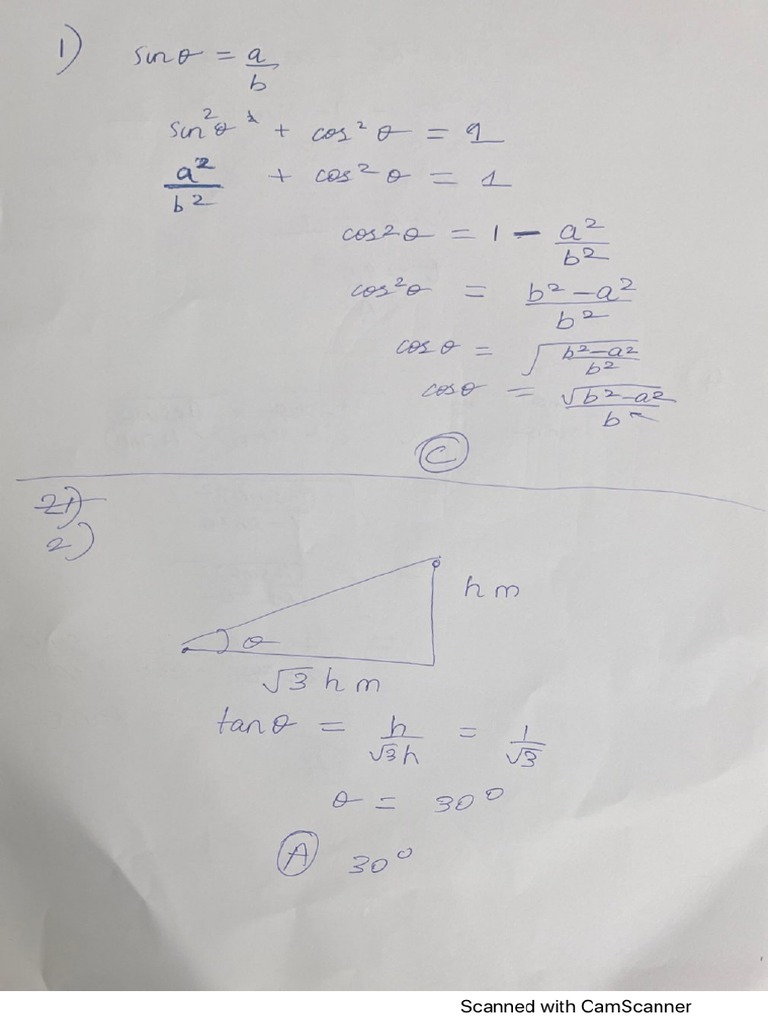 1) sinθ = a/b
sin²θ + cos²θ = 1
a²/b² + cos²θ = 1
cos²θ = 1 - a²/b²
cos²θ = b²-a²/b²
cosθ = √(b²-a²/b²)
cosθ = √b²-a²/b
C
2)
2)
h m
θ
√3 h m
tanθ = h/√3h = 1/√3
θ = 30°
A 30°
Scanned with CamScanner